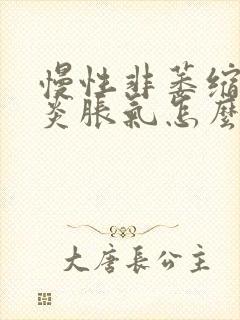 慢性非萎缩
炎脹氣怎麼
大唐長公主